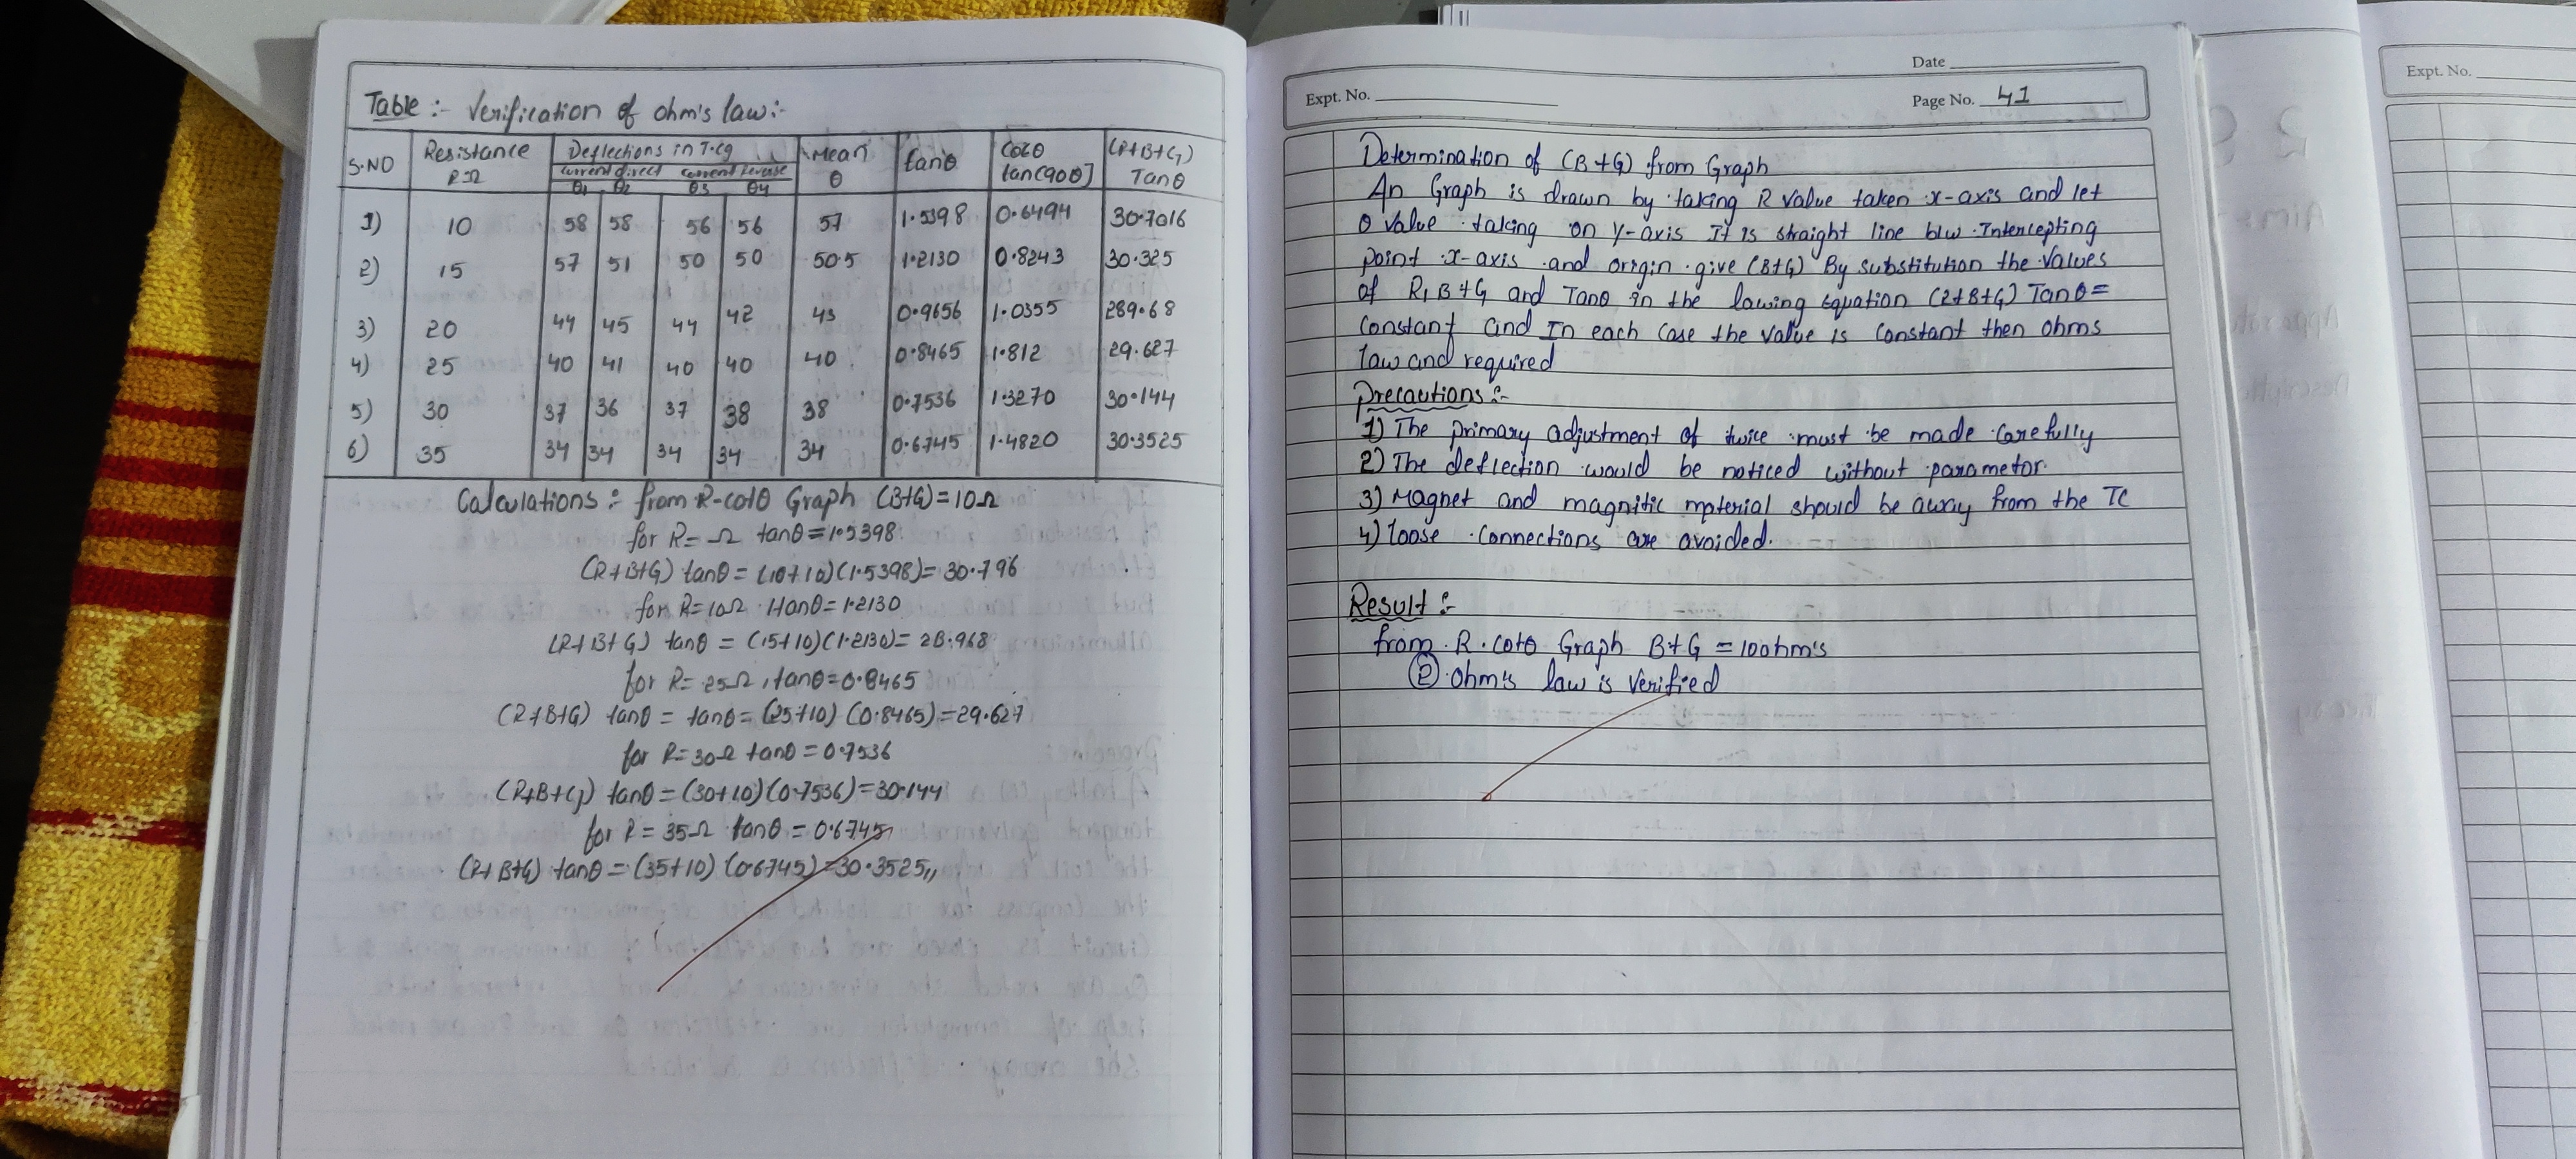 Table :- Verification of ohm's law :-
S.NO Resistance R Ω Deflections in T.Cg Mean θ tanθ Cotθ tan(90θ] (R+B+G) Tanθ
current direct current reverse
θ1 θ2 θ3 θ4
1) 10 58 58 56 56 57 1.5398 0.6494 30.7016
2) 15 57 51 50 50 50.5 1.2130 0.8243 30.325
3) 20 44 45 44 42 43 0.9656 1.0355 289.68
4) 25 40 41 40 40 40 0.8465 1.812 29.627
5) 30 37 36 37 38 38 0.7536 1.3270 30.144
6) 35 34 34 34 34 34 0.6745 1.4820 30.3525
Calculations :- from R-cotθ Graph (B+G) = 10Ω
for R= Ω tanθ = 1.5398
(R+B+G) tanθ = (10+10)(1.5398)= 30.796
for R=10Ω tanθ = 1.2130
(R+B+G) tanθ = (15+10)(1.2130)= 28.968
for R= 25Ω, tanθ=0.8465
(R+B+G) tanθ = tanθ= (25+10) (0.8465)=29.627
for R=30Ω tanθ = 0.7536
(R+B+G) tanθ = (30+10)(0.7536)=30.144
for R = 35Ω tanθ = 0.6745
(R+B+G) tanθ = (35+10) (0.6745) =30.3525,,
Date
Expt. No.
Page No. 41
Determination of (B+G) from Graph
An Graph is drawn by taking R value taken x-axis and let
θ value taking on y-axis It is straight line b/w Intercepting
point x-axis and origin give (B+G) By substitution the values
of R, B+G and Tanθ in the lawing equation (R+B+G) Tanθ =
constant and In each case the value is constant then ohms
law and required
Precautions :-
1) The primary adjustment of twice must be made carefully
2) The deflection would be noticed without parametor.
3) Magnet and magnitic material should be away from the TC
4) loose connections are avoided.
Result :-
from R. cotθ Graph B+G = 10ohm's
② Ohm's law is verified
Expt. No.